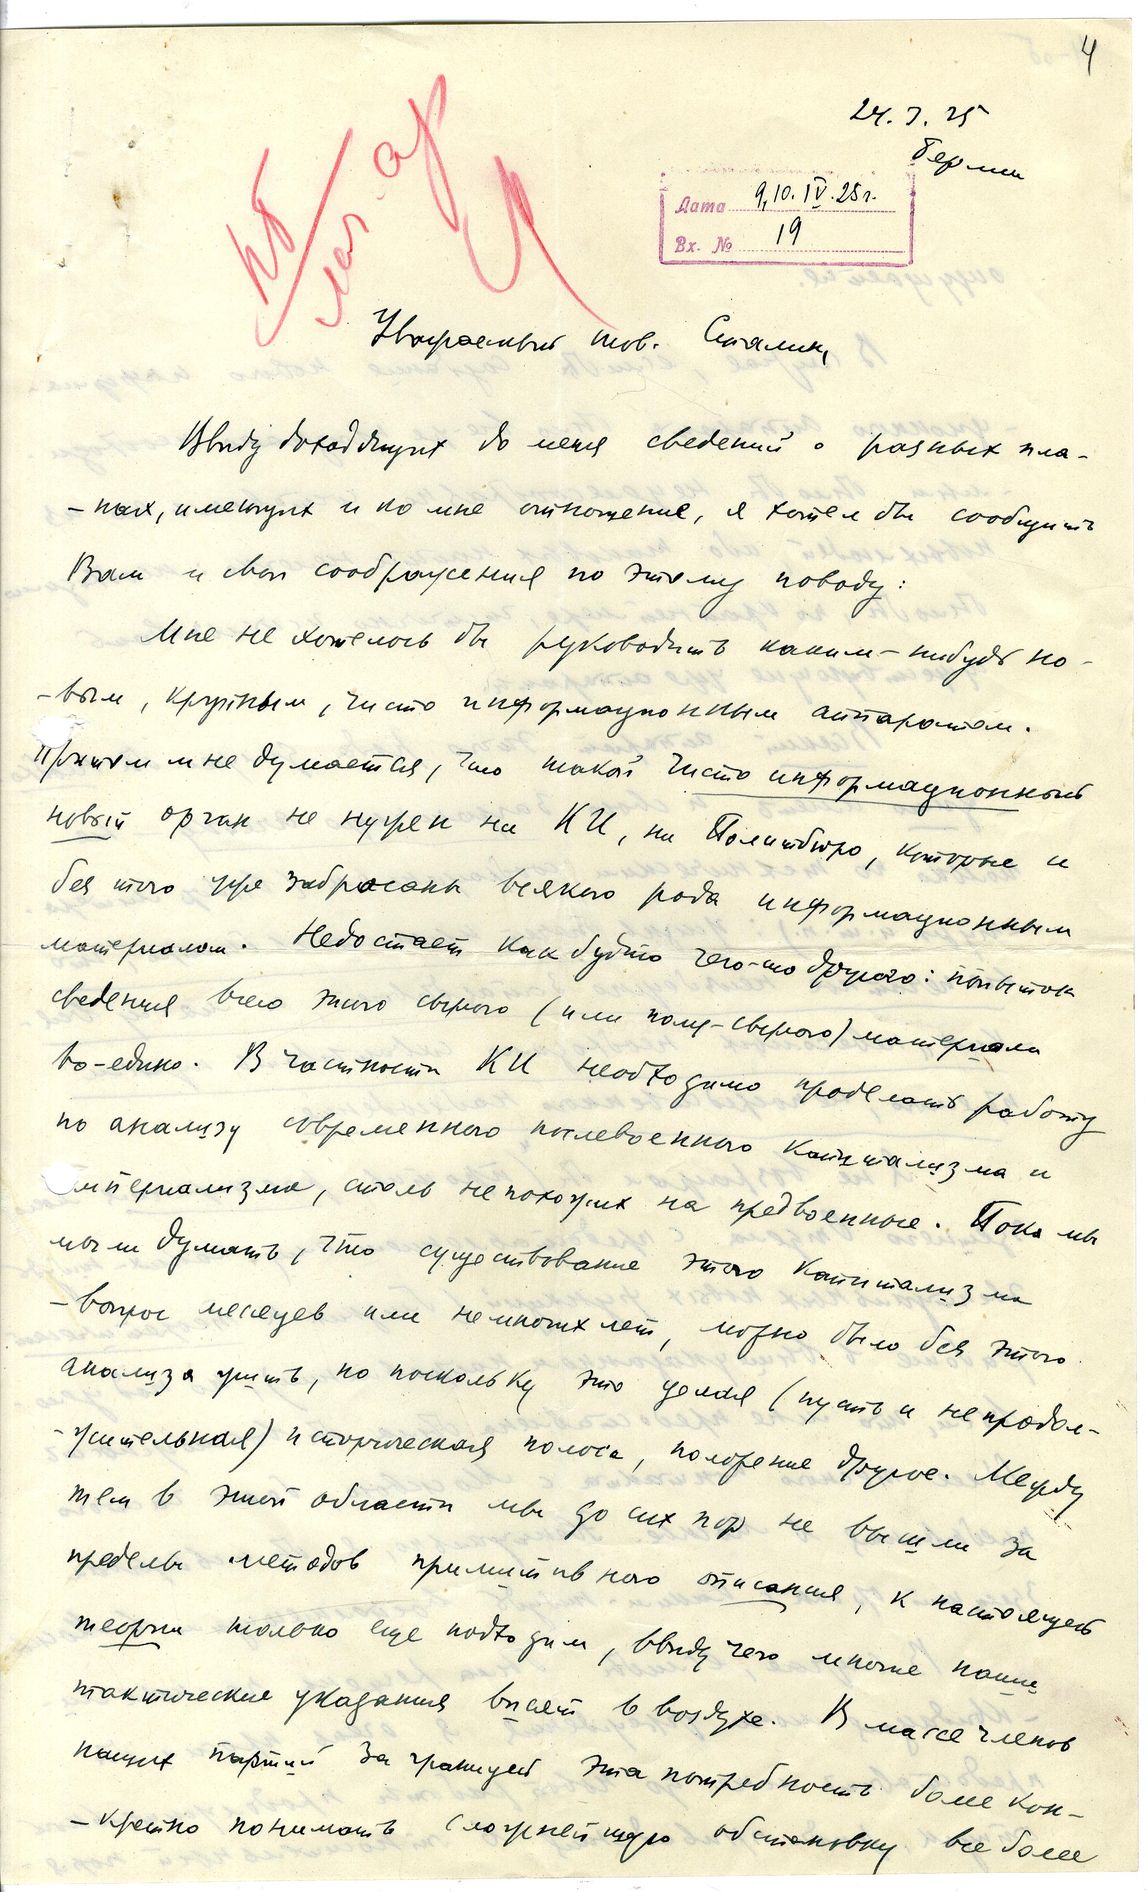 4
24. 3. 25
Берлин
Дата 9,10.IV.25 г.
Вх. № 19
Уважаемый тов. Сталин,
Ввиду доходящих до меня сведений о разных пла-
-нах, имеющих и ко мне отношение, я хотел бы сообщить
Вам и свои соображения по этому поводу:
Мне не хотелось бы руководить каким-нибудь но-
-вым, крупным, чисто информационным аппаратом.
Притом мне думается, что такой чисто информационный
новый орган не нужен ни КИ, ни Политбюро, которые и
без того уже забросаны всякого рода информационным
материалом. Недостает как будто чего-то другого: попыток
сведения всего этого сырого (или полу-сырого) материала
во-едино. В частности КИ необходимо проделать работу
по анализу современного послевоенного капитализма и
империализма, столь непохожих на предвоенные. Пока мы
могли думать, что существование этого капитализма
-вопрос месяцев или немногих лет, можно было без этого
анализа жить, но поскольку это целая (пусть и непродол-
-жительная) историческая полоса, положение другое. Между
тем в этой области мы до сих пор не вышли за
пределы методов примитивного описания, к настоящей
теории только еще подходим, ввиду чего многие наши
тактические указания висят в воздухе. В массе членов
наших партий за границей эта потребность более кон-
-кретно понимать сложнейшую обстановку все более